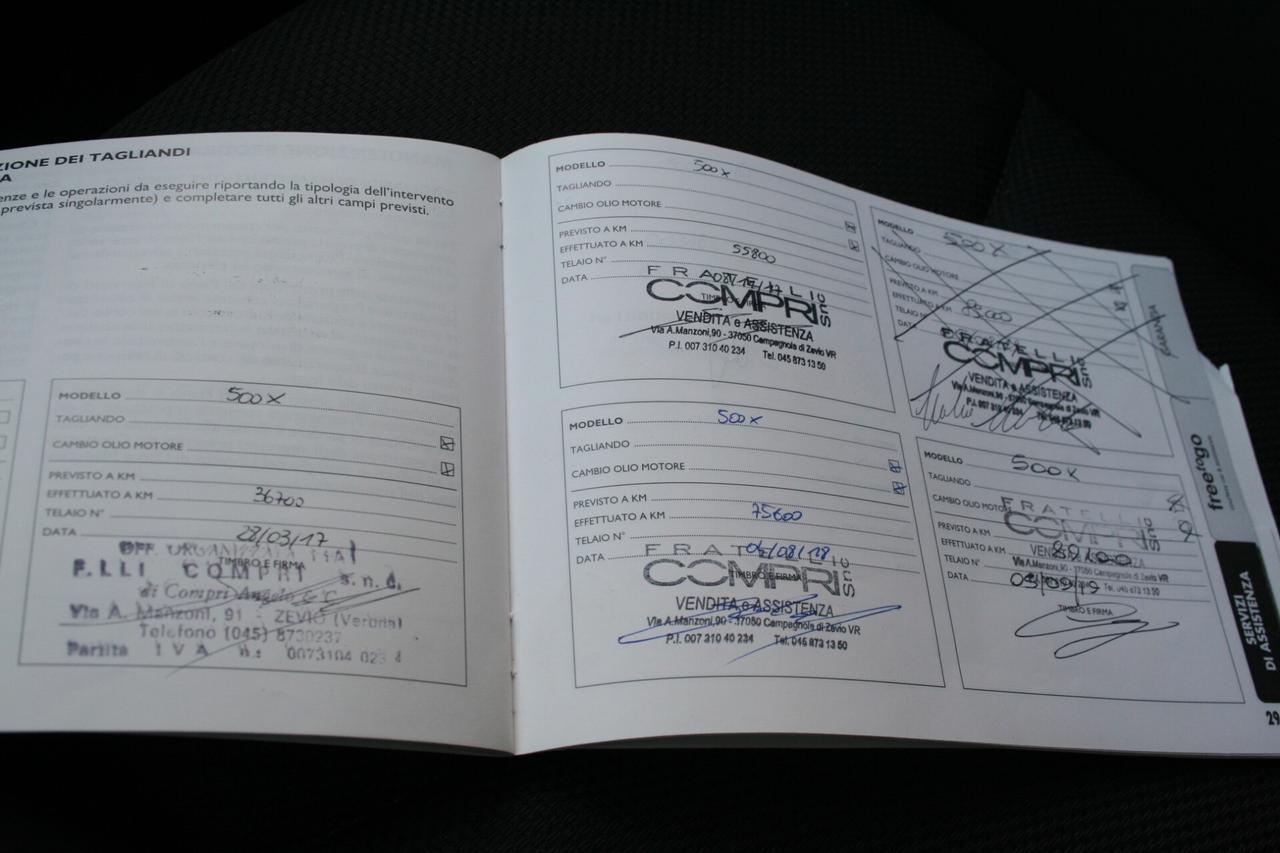 ZIONE DEI TAGLIANDI
A
enze e le operazioni da eseguire riportando la tipologia dell'intervento
prevista singolarmente) e completare tutti gli altri campi previsti.
MODELLO 500X
TAGLIANDO
CAMBIO OLIO MOTORE
PREVISTO A KM
EFFETTUATO A KM 36700
TELAIO N°
DATA 28/03/17
OFF.
TIMBRO E FIRMA
F.LLI COMPRI s.n.d.
di Compri Angelo & C.
Via A. Manzoni, 91 - ZEVIO (Verona)
Telefono (045) 8730237
Partita IVA n.: 0073104 023 4
MODELLO 500X
TAGLIANDO
CAMBIO OLIO MOTORE
PREVISTO A KM
EFFETTUATO A KM 55800
TELAIO N°
DATA
FRATELLI
COMPRI snc
VENDITA e ASSISTENZA
Via A.Manzoni,90 - 37050 Campagnola di Zevio VR
P.I. 007 310 40 234 Tel. 045 873 13 50
MODELLO 500X
TAGLIANDO
CAMBIO OLIO MOTORE
PREVISTO A KM
EFFETTUATO A KM 75600
TELAIO N°
DATA
FRATELLI
TIMBRO E FIRMA
COMPRI snc
VENDITA e ASSISTENZA
Via A.Manzoni,90 - 37050 Campagnola di Zevio VR
P.I. 007 310 40 234 Tel. 045 873 13 50
MODELLO 500X
TAGLIANDO
CAMBIO OLIO MOTORE
PREVISTO A KM
EFFETTUATO A KM
TELAIO N°
DATA
FRATELLI
COMPRI snc
VENDITA e ASSISTENZA
Via A.Manzoni,90 - 37050 Campagnola di Zevio VR
P.I. 007 310 40 234 Tel. 045 873 13 50
MODELLO 500X
TAGLIANDO
CAMBIO OLIO MOTORE
FRATELLI
COMPRI snc
PREVISTO A KM
EFFETTUATO A KM
VENDITA e ASSISTENZA
TELAIO N°
Via A.Manzoni,90 - 37050 Campagnola di Zevio VR
DATA 03/09/19
Tel. 045 873 13 50
TIMBRO E FIRMA
GARANZIA
freetogo
SERVIZI
DI ASSISTENZA
29